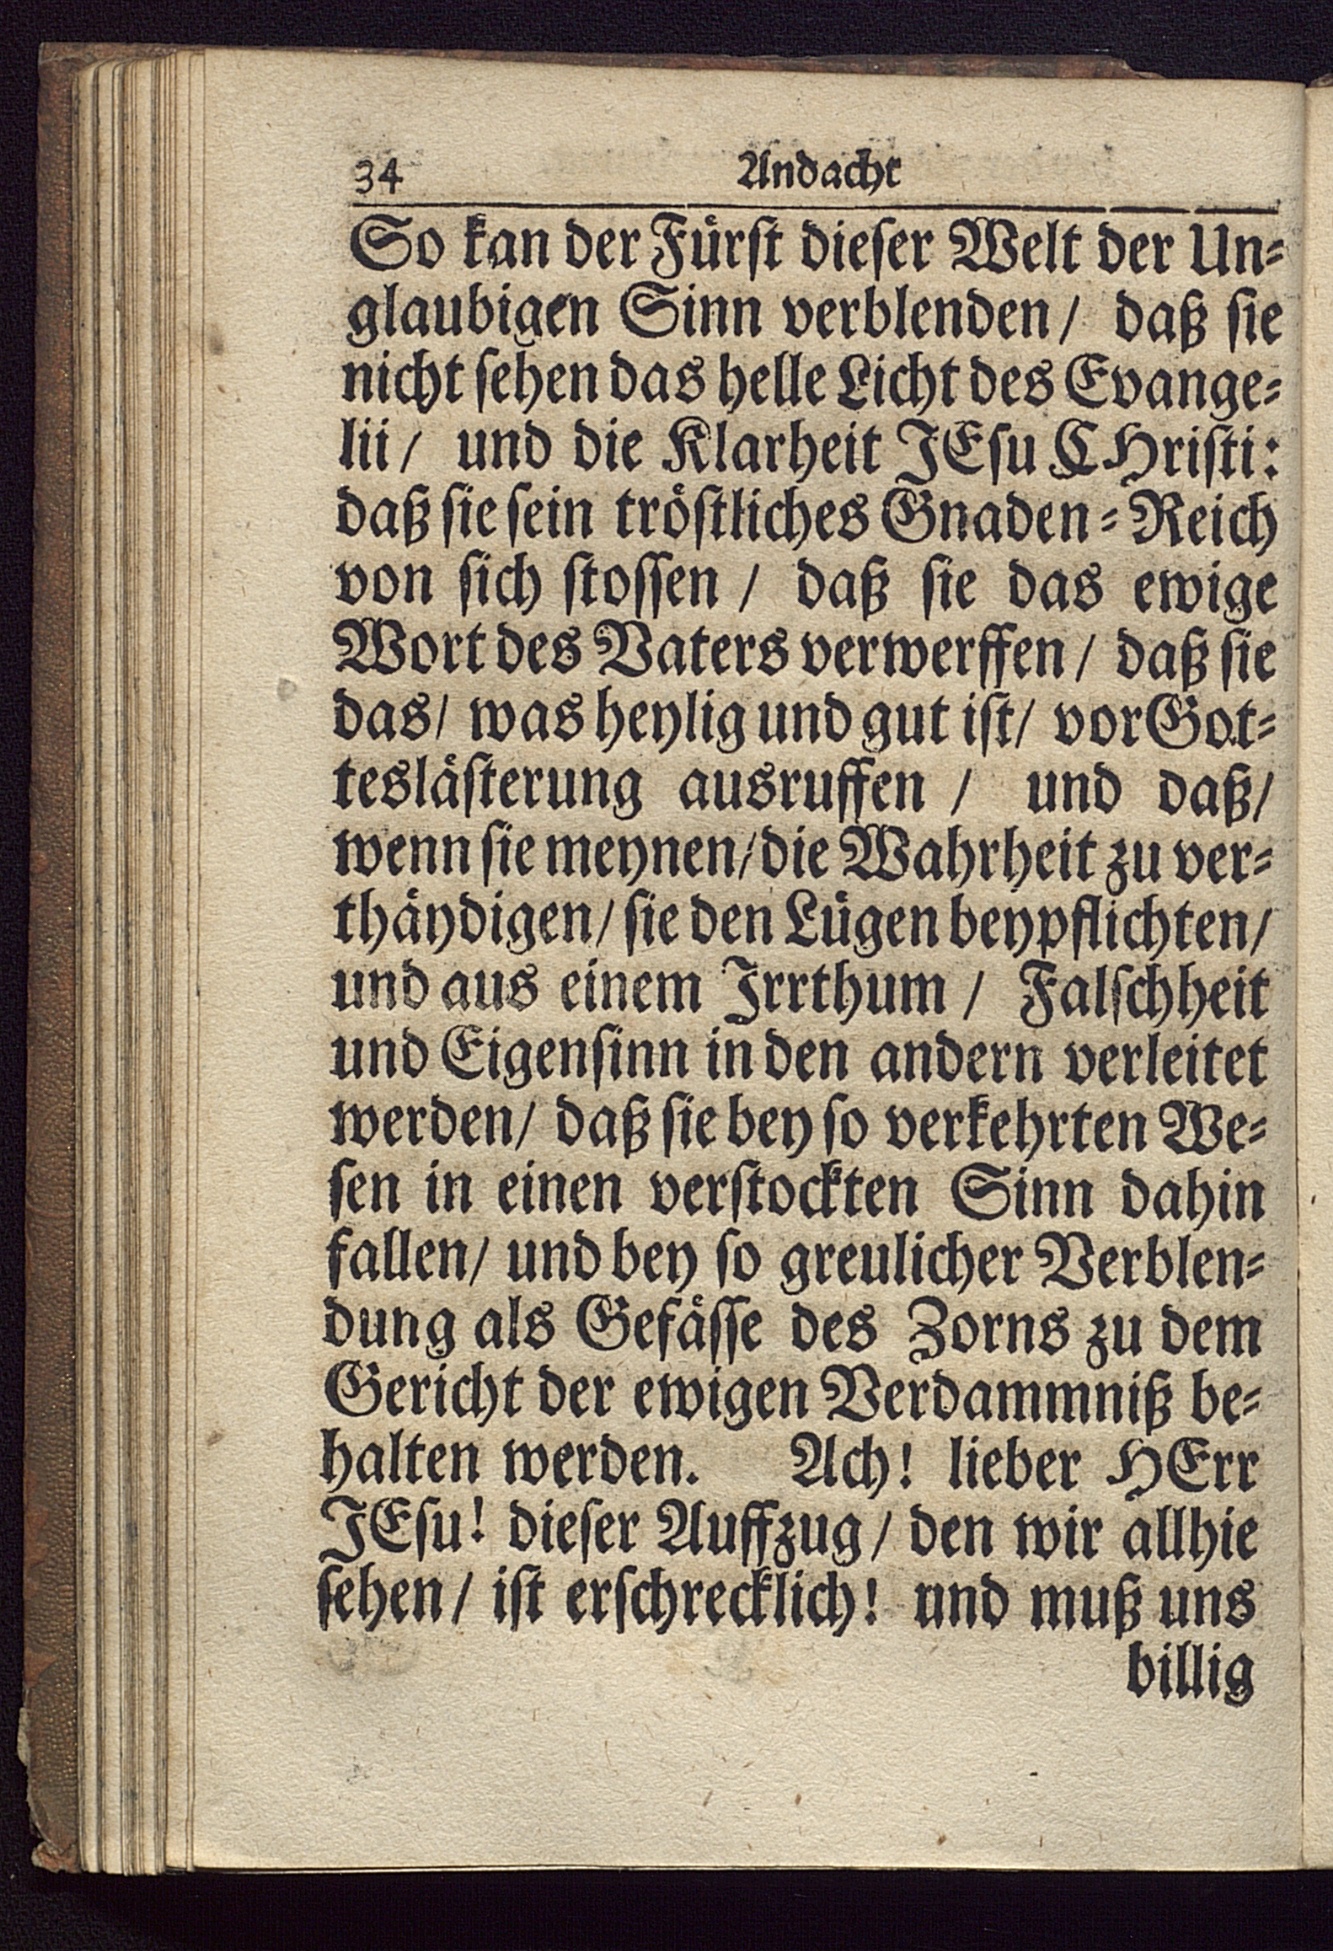 34 Andacht
So kan der Fürst dieser Welt der Un-
glaubigen Sinn verblenden/ daß sie
nicht sehen das helle Licht des Evange-
lii/ und die Klarheit JEsu CHristi:
daß sie sein tröstliches Gnaden-Reich
von sich stossen / daß sie das ewige
Wort des Vaters verwerffen/ daß sie
das/ was heylig und gut ist/ vor Got-
teslästerung ausruffen / und daß/
wenn sie meynen/ die Wahrheit zu ver-
thäydigen/ sie den Lügen beypflichten/
und aus einem Irrthum / Falschheit
und Eigensinn in den andern verleitet
werden/ daß sie bey so verkehrten We-
sen in einen verstockten Sinn dahin
fallen/ und bey so greulicher Verblen-
dung als Gefässe des Zorns zu dem
Gericht der ewigen Verdammniß be-
halten werden. Ach! lieber HErr
JEsu! dieser Auffzug/ den wir allhie
sehen/ ist erschrecklich! und muß uns
billig